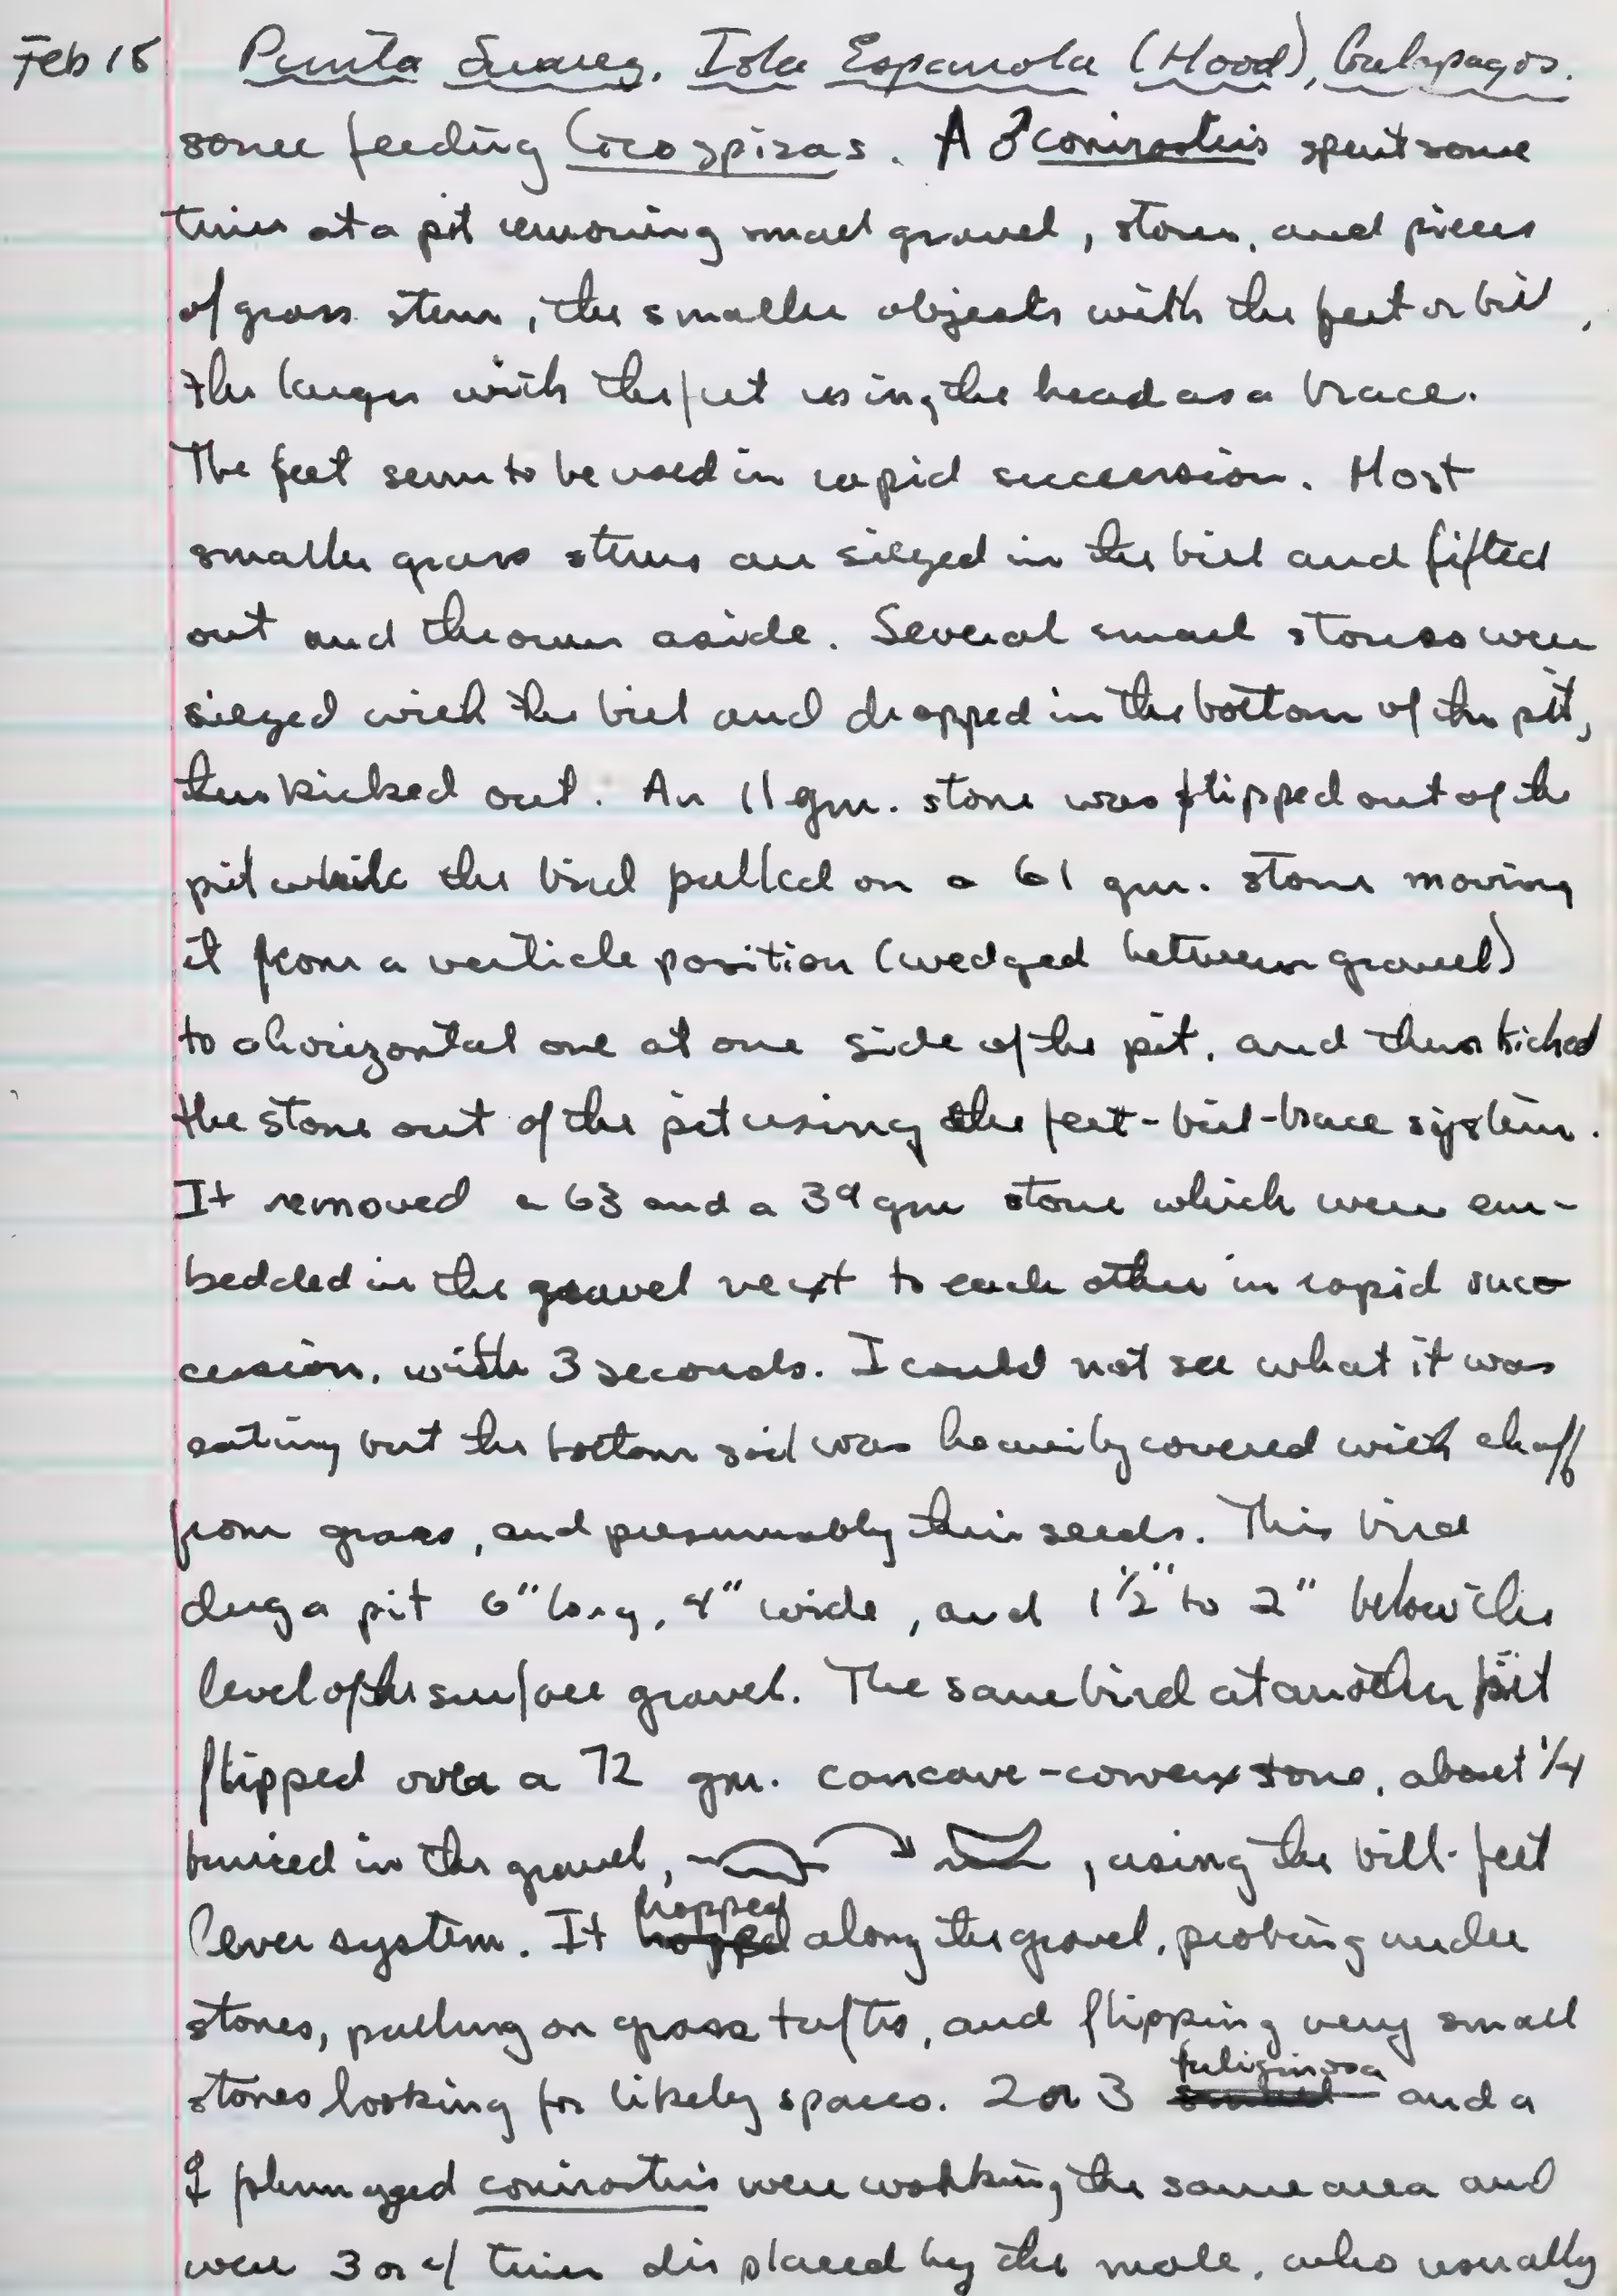 Feb 18 Punta Suarez, Isla Espanola (Hood), Galapagos.
some feeding Geospizas. A ♂ conirostris spent some
time at a pit removing small gravel, stones, and pieces
of grass stem, the smaller objects with the feet or bill,
the larger with the feet using the head as a brace.
The feet seem to be used in rapid succession. Most
smaller grass stems are siezed in the bill and lifted
out and thrown aside. Several small stones were
siezed with the bill and dropped in the bottom of the pit,
then kicked out. An 11 gm. stone was flipped out of the
pit while the bird pulled on a 61 gm. stone moving
it from a verticle position (wedged between gravel)
to a horizontal one at one side of the pit, and then kicked
the stone out of the pit using the feet-bill-brace system.
It removed a 63 and a 39 gm stone which were em-
bedded in the gravel next to each other in rapid suc-
cession, with 3 seconds. I could not see what it was
eating but the bottom soil was heavily covered with chaff
from grass, and presumably their seeds. This bird
dug a pit 6" long, 4" wide, and 1 1/2" to 2" below the
level of the surface gravel. The same bird at another pit
flipped over a 72 gm. concave-convex stone, about 1/4
buried in the gravel, , using the bill-feet
lever system. It hopped along the gravel, probing under
stones, pulling on grass tufts, and flipping very small
stones looking for likely spaces. 2 or 3 fuliginosa and a
♀ plumaged conirostris were working the same area and
were 3 or 4 times displaced by the male, who usually